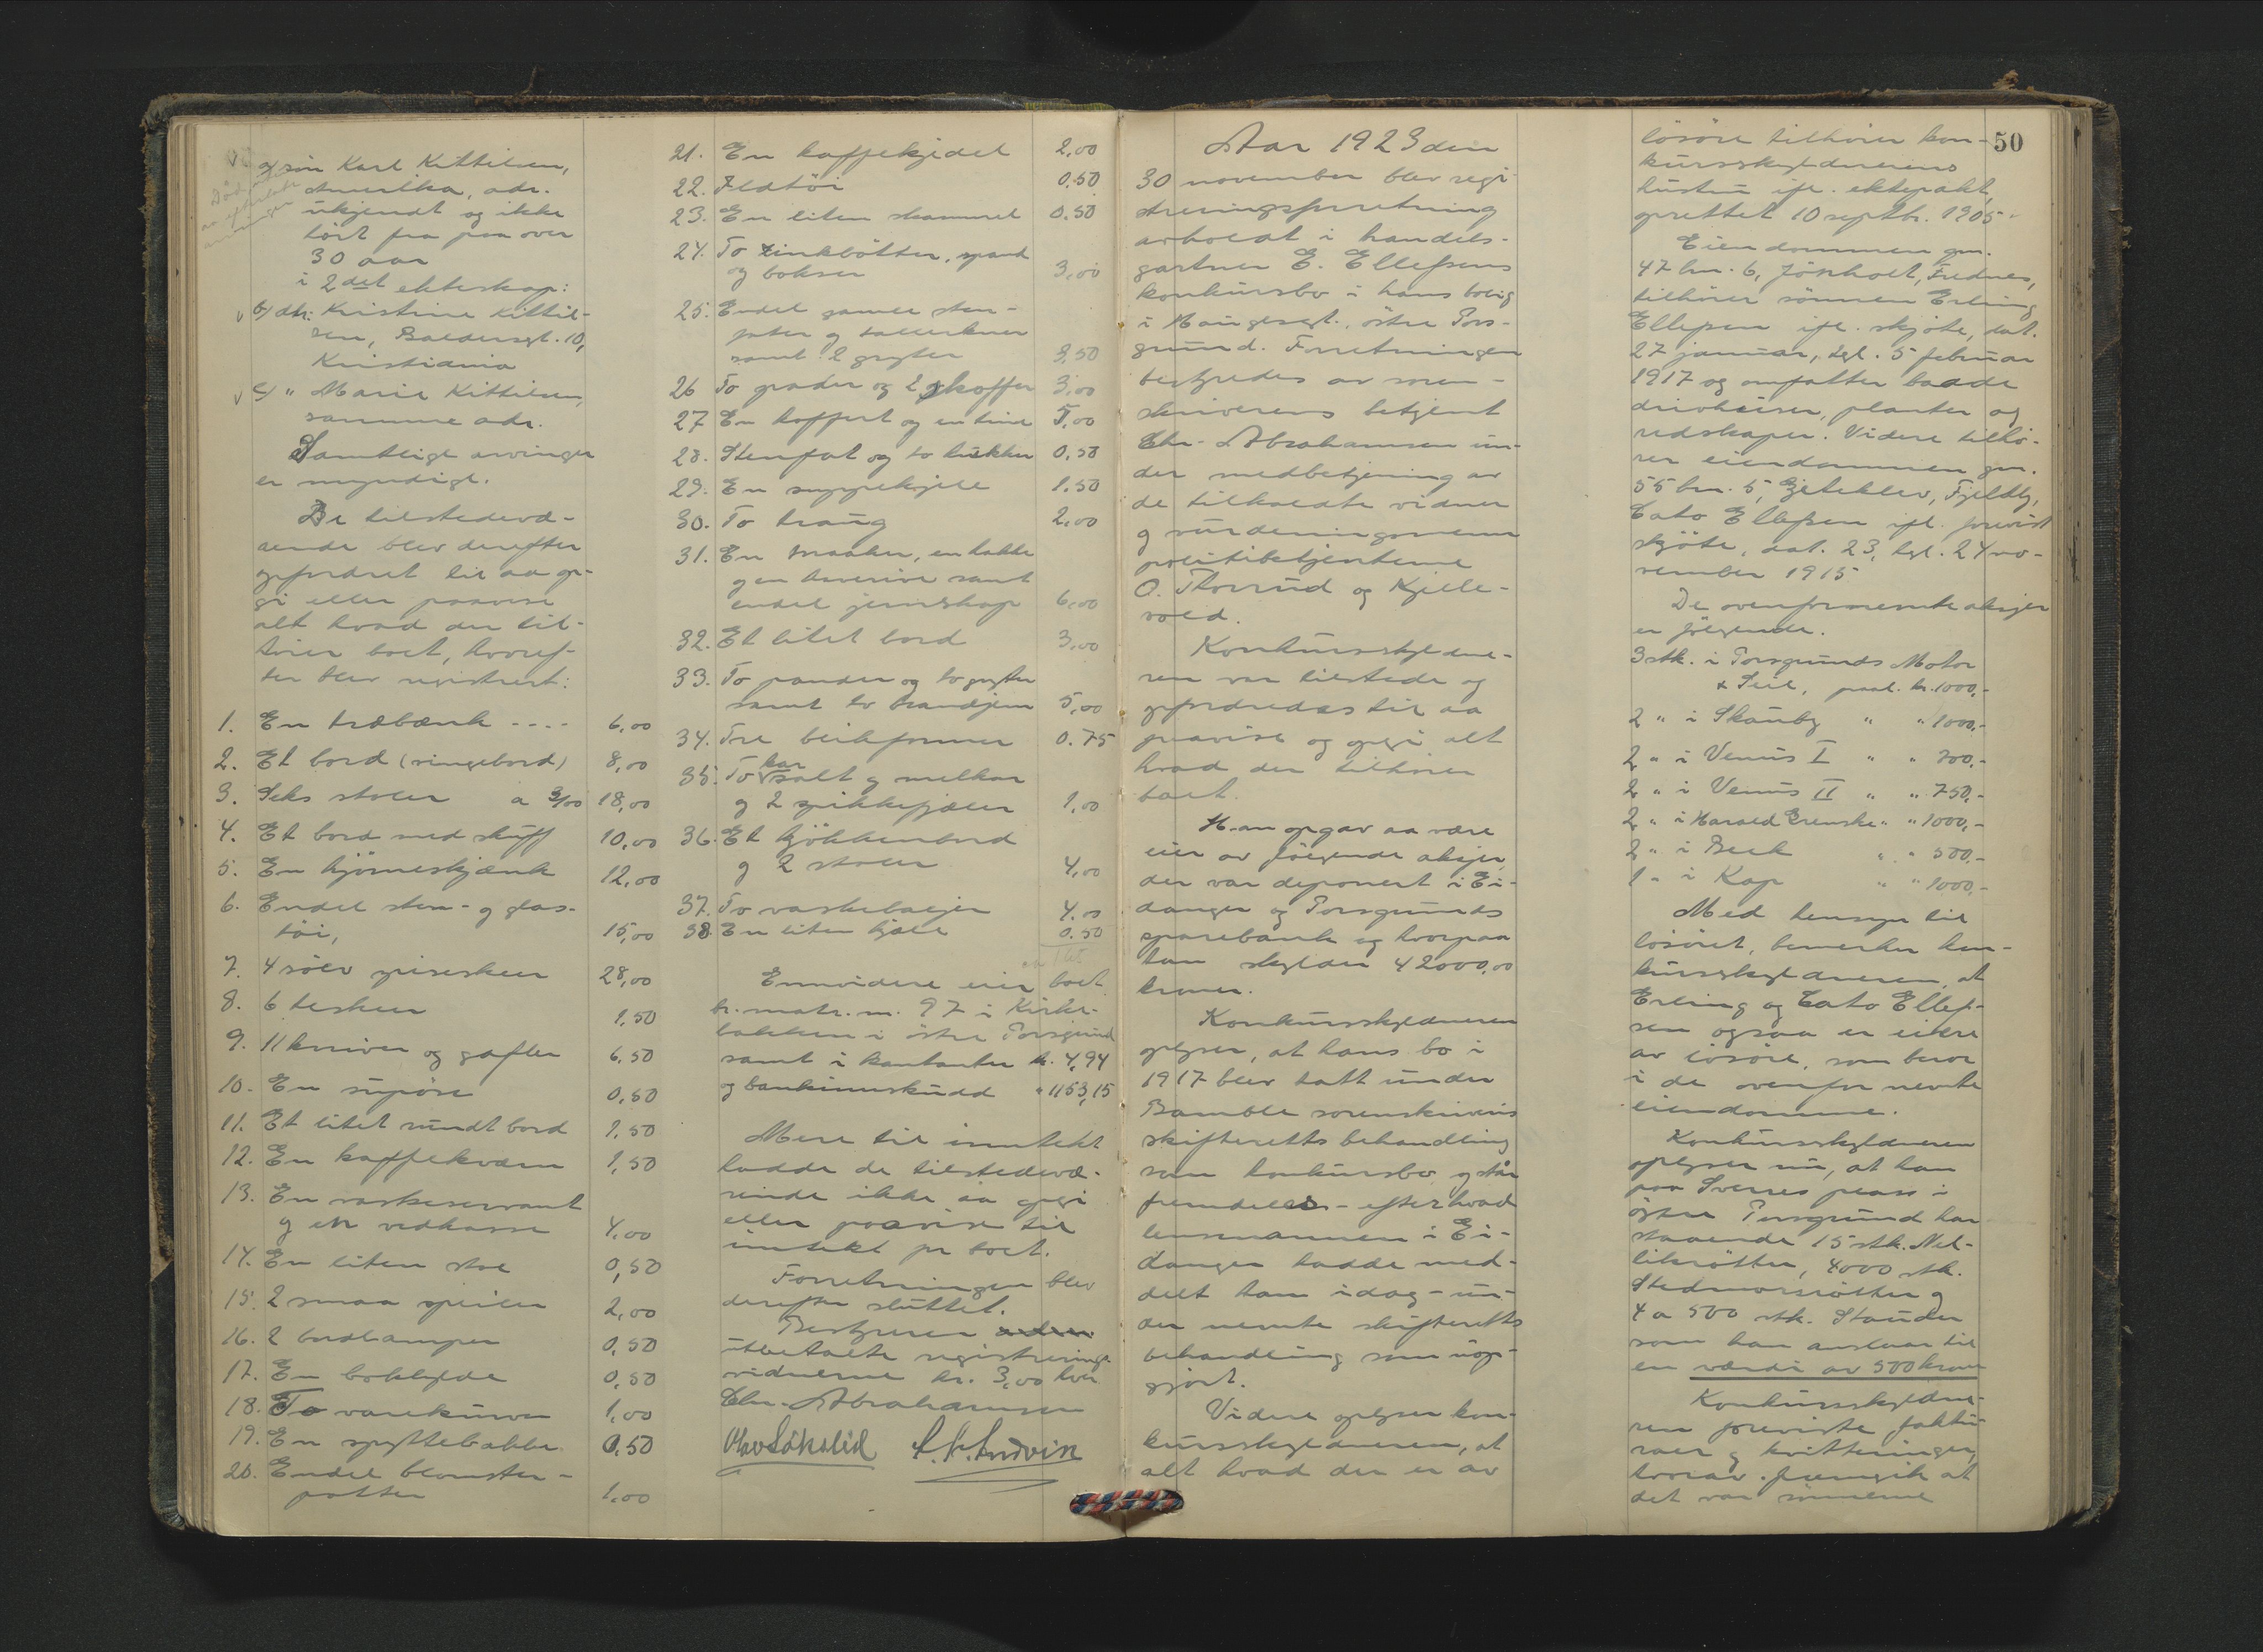 a) sön Karl Kittilsen,
Amerika, adr.
ukjendt og ikke
hört fra paa over
30 aar
i 2det ekteskap:
b) dtr: Kristine Kittil-
sen, Baldersgt. 10,
Kristiania
c) " Marie Kittilsen,
samme adr.
Samtlige arvinger
er myndige.
De tilstedevæ-
rende blev derefter
opfordret til aa op-
gi eller paavise
alt hvad der til-
hörer boet, hvoref-
ter blev registrert:
1. En træbænk - - - - 6,00
2. Et bord (vingebord) 8,00
3. Seks stoler a 3/00 18,00
4. Et bord med skuff 10,00
5. En hjörneskjænk 12,00
6. Endel sten- og glas-
töi, 15,00
7. 4 sölv spiseskeer 28,00
8. 6 teskeer 1,50
9. 11 kniver og gafler 6,50
10. En supöse 0,50
11. Et litet rundt bord 1,50
12. En kaffekværn 1,50
13. En vaskeservant
og en vedkasse 4,00
14. En liten stol 0,50
15. 2 smaa speiler 2,00
16. 2 bordlamper 0,50
17. En bokhylde 0,50
18. To varekurver 1,00
19. En spyttebakke 0,50
20. Endel blomster-
potter 1,00
21. En kaffekjedel 2,00
22. Ildtöi 0,50
23. En liten skammel 0,50
24. To zinkbötter, spand
og bokser 3,00
25. Endel gamle sten-
fater og tallerkner
samt 2 gryter 3,50
26 To grader og 2 skoffer 3,00
27 En koffert og en tine 5,00
28. Stenfat og to krukker 0,50
29. En suppekjele 1.50
30. To traug 2,00
31. En spaaker, en hakke
og en haverive samt
endel jernskap 6,00
32. Et litet bord 3,00
33. To pander og to gryter
samt to strandjern 5,00
34. Tre beikformer 0.75
35. To kar salt og melkar
og 2 spikkefjæler 1,00
36. Et kjökkenbord
og 2 stoler 4,00
37. To vaskebaljer 4.00
38. En liten kjele 0.50
Ennvidere eier boet
br. matr. nr. 97 i Kirke-
bakken i östre Porsgrund
samt i kontanter kr. 4,94
og bankinnskudd " 1153,15
Mere til inntekt
hadde de tilstedevæ-
rende ikke aa opgi
eller paavise til
inntekt for boet.
Forretningen blev
derefter sluttet.
Bestyreren
utbetalte registrerings-
vidnerne kr. 3,00 hver.
Chr. Abrahamsen
Olav Låkslid
Aar 1923 den
30 november blev regi-
streringsforretning
avholdt i handels-
gartner E. Ellefsens
konkursbo i hans bolig
i Haugesgt., östre Pors-
grund. Forretningen
bestyredes av soren-
skriverens betjent
Chr. Abrahamsen un-
der medbetjening av
de tilkaldte vidner
og vurderingsmenn
politibetjentene
O. Thorrud og Kjelle-
vold.
Konkursskyldne-
ren var tilstede og
opfordredes til aa
paavise og opgi alt
hvad der tilhörer
boet.
Han opgav aa være
eier av fölgende aksjer,
der var deponert i Ei-
danger og Porsgrunds
sparebank og hvorpaa
han skylder 42000,00
kroner.
Konkursskyldneren
oplyser, at hans bo i
1917 blev tatt under
Bamble sorenskriveris
skifteretts behandling
som konkursbo, og står
fremdeles - efter hvad
lensmannen i Ei-
danger hadde med-
delt ham idag - un-
der nevnte skifteretts
behandling som uop-
gjort.
Videre oplyser kon-
kursskyldneren, at
alt hvad der er av
50
lösöre tilhörer kon-
kursskyldnerens
hustru ifl. ektepakt,
oprettet 10 septbr. 1905.
Eiendommen gnr.
47 bnr. 6, Jönholt, Frednes,
tilhörer sönnen Erling
Ellefsen ifl. skjöte, dat.
27 januar, tgl. 5 februar
1917 og omfatter baade
drivhuser, planter og
redskaper. Videre tilhö-
rer eiendommen gnr.
55 bnr. 5, Gjeteklev, Fjeldby,
Cato Ellefsen ifl. forevist
skjöte, dat. 23, tgl. 24 no-
vember 1915.
De ovenfornevnte aksjer
er fölgende.
3 stk. i Porsgrunds Motor
& Seil, paal. kr. 1000,-
2 " i Skauby " " 1000,-
2 " i Venus I " " 700,-
2 " i Venus II " " 750,-
2 " i Harald Grenske " " 1000,-
2 " i Beck " " 500,-
1 " i Kap " " 1000,-
Med hensyn til
lösöret, bemerker kon-
kursskyldneren, at
Erling og Cato Ellef-
sen ogsaa er eiere
av lösöre, som beror
i de ovenfor nevnte
eiendomme.
Konkursskyldneren
oplyser nu, at han
paa Sverres plass i
östre Porsgrund har
staaende 15 stk. Nel-
likrötter, 4000 stk.
Stedmorsrötter og
4 a 500 stk. Stauder
som han anslaar til
en værdi av 500 kroner
Konkursskyldne-
ren foreviste faktu-
raer og kvitteringer,
hvorav fremgik at
det var sönnerne